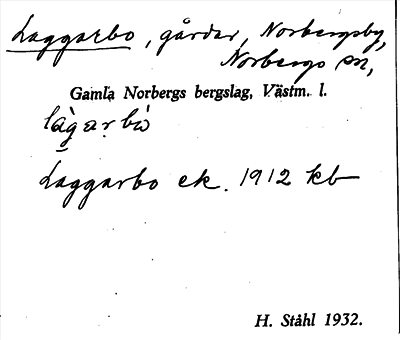 Laggarbo, gårdar, Norbergsby,
Norbergs sn,
Gamla Norbergs bergslag, Västm. l.
Laggarbo ek. 1912 kb
H. Ståhl 1932.